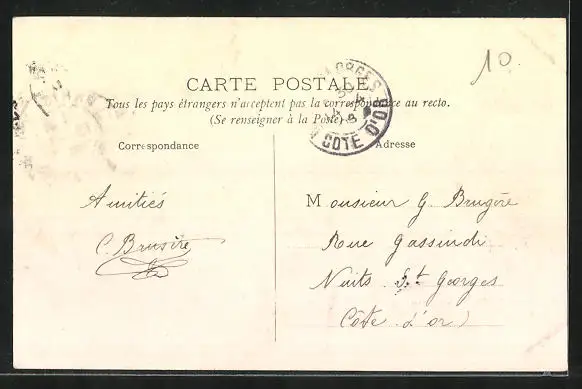 10.
CARTE POSTALE
Tous les pays étrangers n'acceptent pas la correspondance au recto.
(Se renseigner à la Poste)
GEORGES
COTE D'OR
Correspondance
Adresse
Amitiés
C. Brusère
Monsieur G. Brugère
Rue Gassindi
Nuits St Georges
Côte d'or)